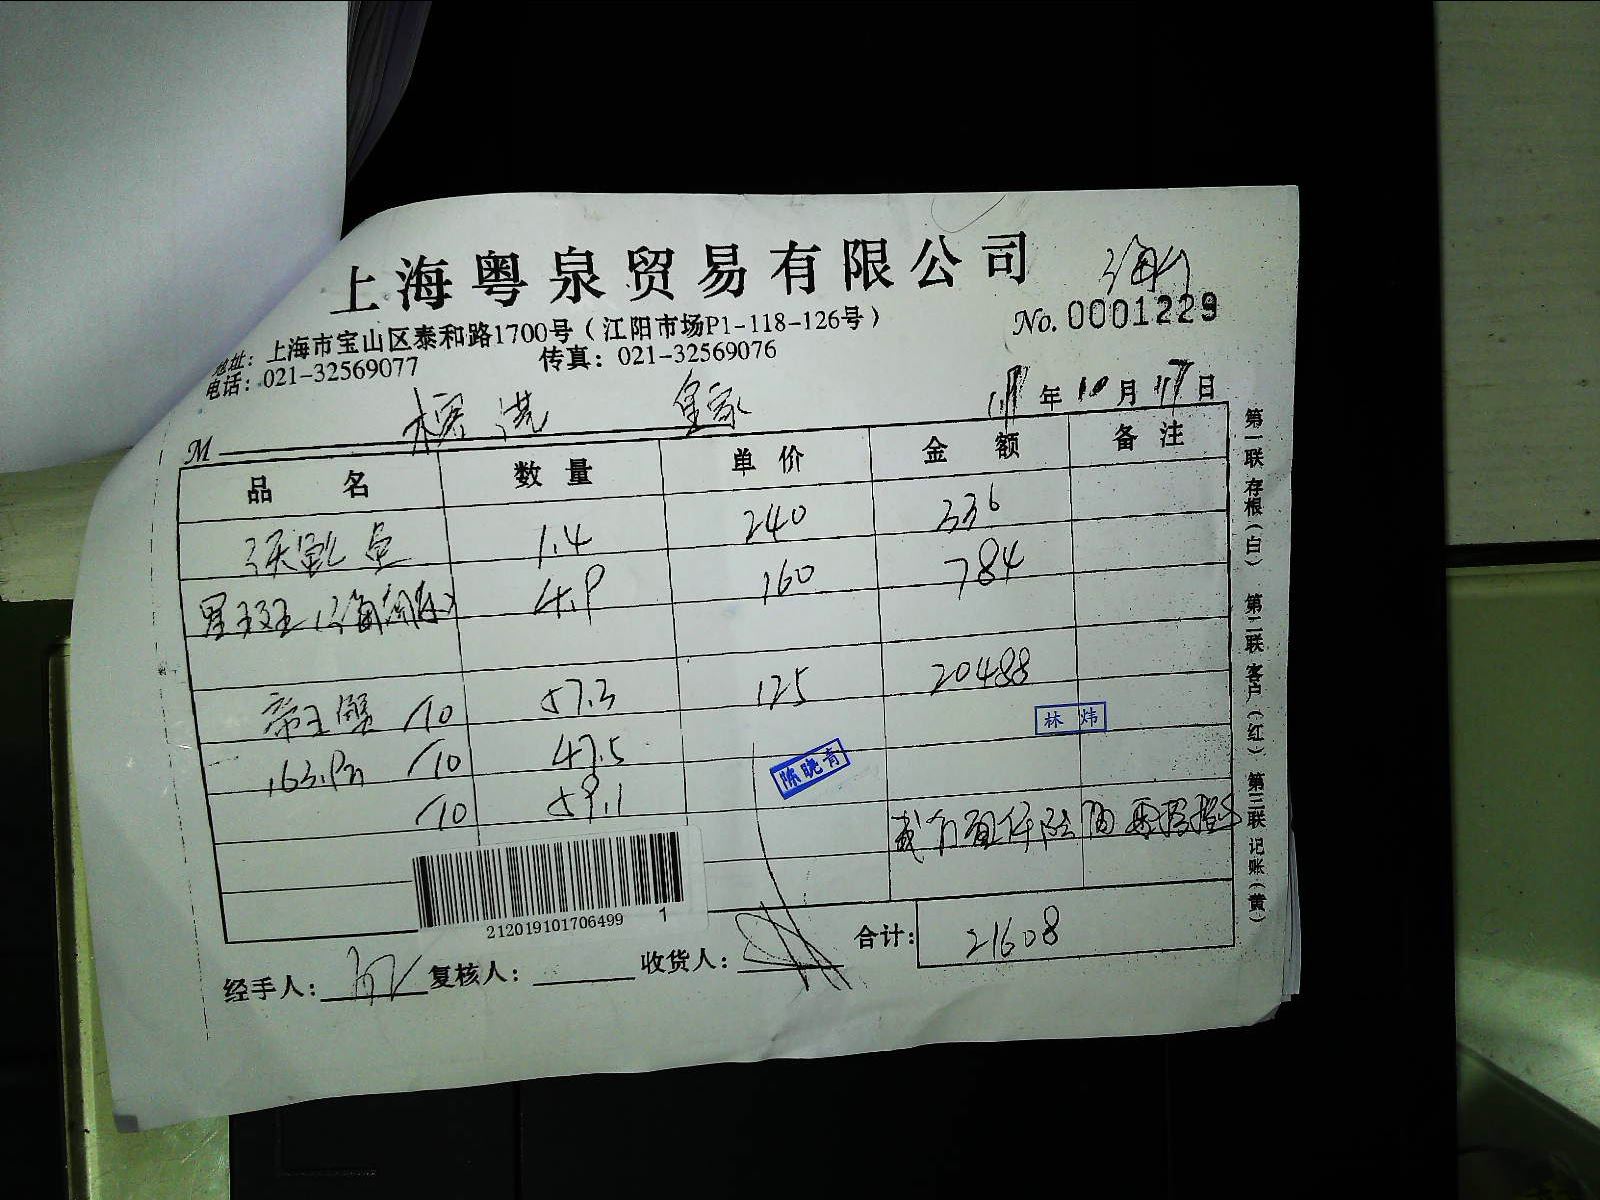 上海粤泉贸易有限公司
地址：上海市宝山区泰和路1700号（江阳市场P1-118-126号）
No.0001229
电话：021-32569077 传真：021-32569076
年10月17日
M 皇家
品 名 数 量 单 价 金 额 备 注
1.4 240 336
4.9 160 784
帝王蟹 /10 57.3 125 20488
163.9 /10 47.5
/10 59.1
林 炜
陈晓青
212019101706499 1
合计：21608
经手人： 复核人： 收货人：
第一联 存根（白） 第二联 客户（红） 第三联 记账（黄）